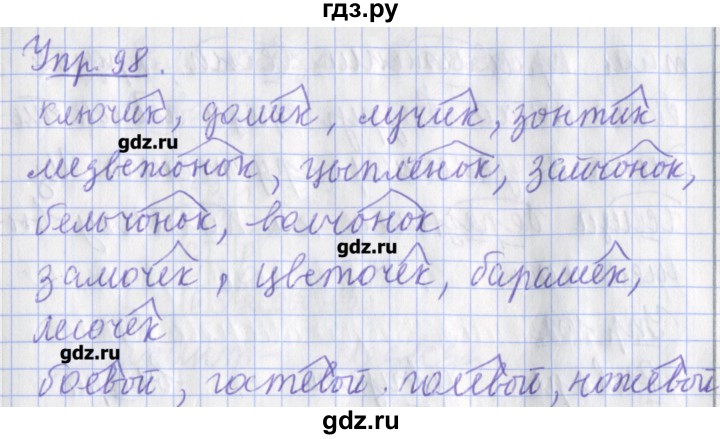 гдз.ру
Упр. 98.
ключик, домик, лучик, зонтик
gdz.ru
медвежонок, цыплёнок, зайчонок,
бельчонок, волчонок
gdz.ru
замочек, цветочек, барашек,
лесочек
gdz.ru
боевой, гостевой. полевой, ножевой
gdz.ru